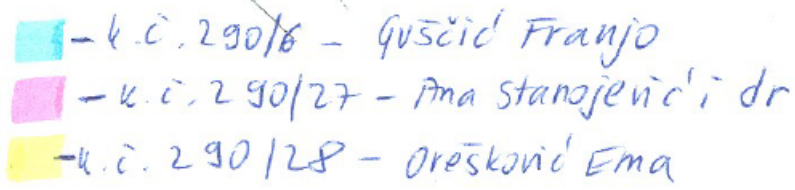 - k.č. 290/6 - Guščić Franjo
- k.č. 290/27 - Ana Stanojević i dr
- k.č. 290/28 - Orešković Ema